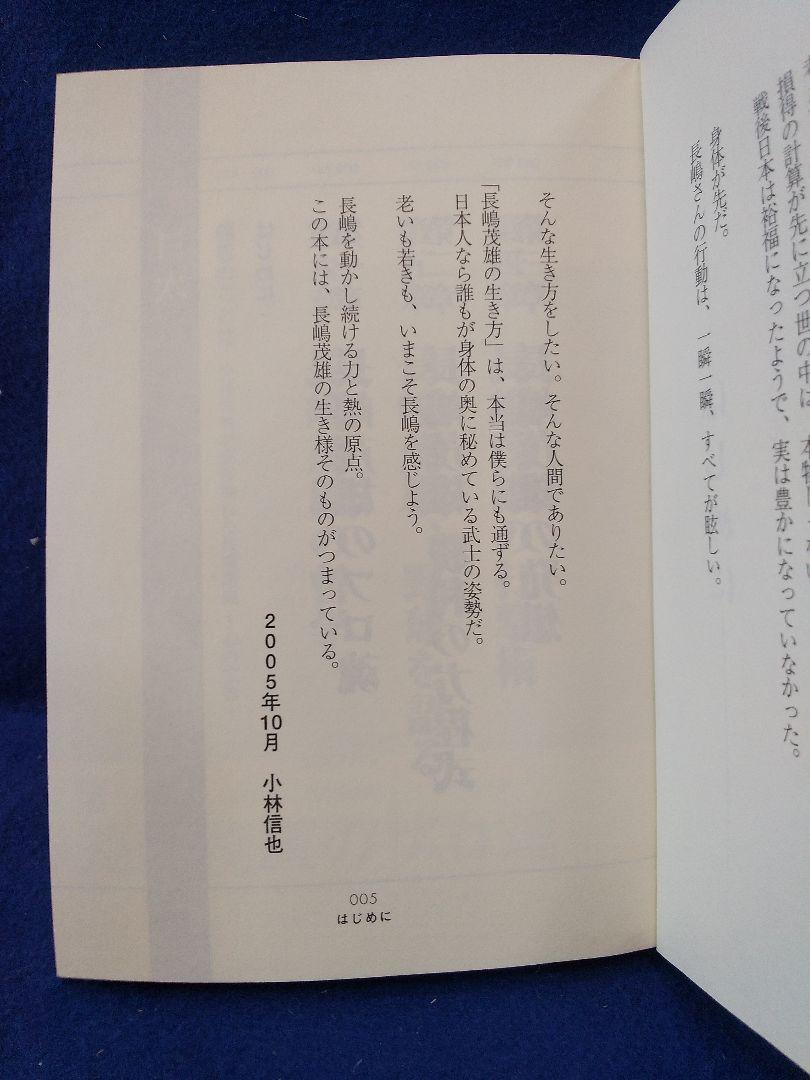 損得の計算が先に立つ世の中は、本物じゃない
戦後日本は、裕福になったようで、実は豊かになっていなかった。
身体が先だ。
長嶋さんの行動は、一瞬一瞬、すべてが眩しい。
そんな生き方をしたい。そんな人間でありたい。
「長嶋茂雄の生き方」は、本当は僕らにも通ずる。
日本人なら誰もが身体の奥に秘めている武士の姿勢だ。
老いも若きも、いまこそ長嶋を感じよう。
長嶋を動かし続ける力と熱の原点。
この本には、長嶋茂雄の生き様そのものがつまっている。
2005年10月　小林信也
005
はじめに